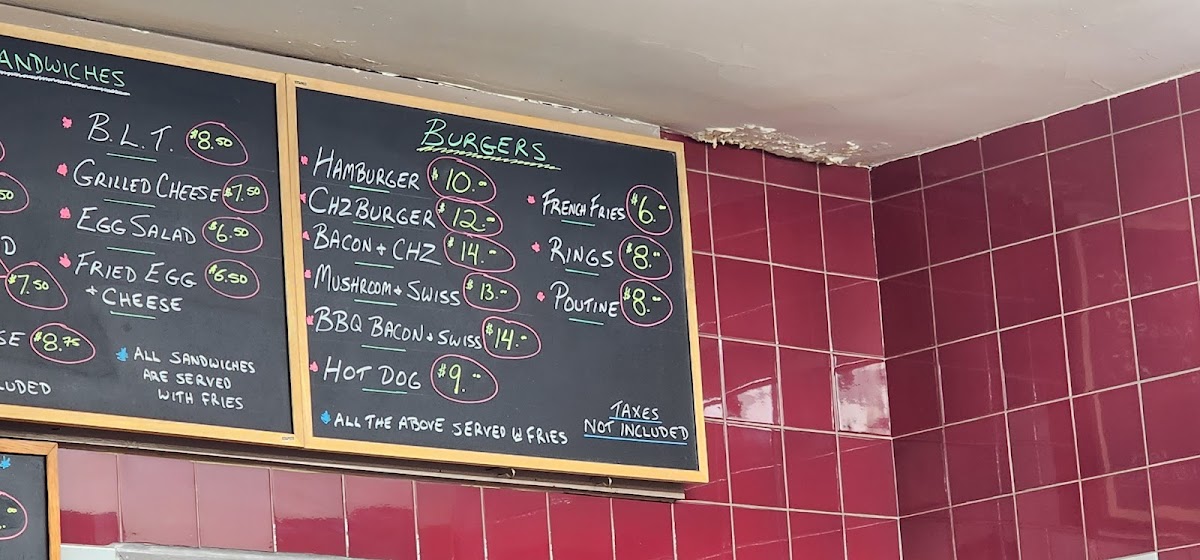 ANDWICHES
B.L.T. $8.50
GRILLED CHEESE $7.50
EGG SALAD $6.50
FRIED EGG $6.50
+ CHEESE
50
D
$7.50
SE $8.75
LUDED
ALL SANDWICHES
ARE SERVED
WITH FRIES
BURGERS
HAMBURGER $10.--
CHZBURGER $12.--
BACON + CHZ $14.--
MUSHROOM + SWISS $13.--
BBQ BACON + SWISS $14.--
HOT DOG $9.--
FRENCH FRIES $6.--
RINGS $8.--
POUTINE $8.--
ALL THE ABOVE SERVED W FRIES
TAXES
NOT INCLUDED